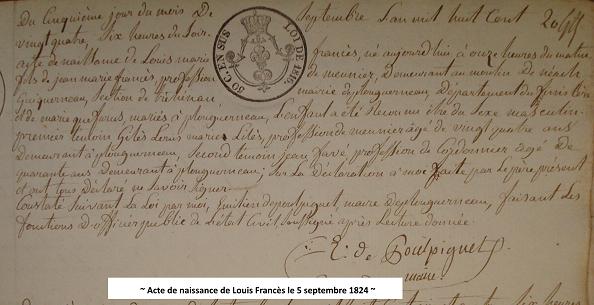 Du Cinquieme jour du mois De Septembre L'an mil huit Cent
vingt quatre, Six heures du Soir
acte de naissance de Louis marie francès, né aujourd'hui à onze heures du matin
fils de jean marie francès, profession de meunier, Demeurant au moulin de
mairie deplouguerneau, Département du finistère
et de marie mariés à plouguerneau, L'enfant a été reconnu être du Sexe masculin
premier temoin Louis marie profession de meunier âgé de vingt quatre ans
Demeurant à plouguerneau, Second temoin jean favé profession de Cordonnier âgé De
quarante ans Demeurant à plouguerneau; Sur La Déclaration à moi faite par Le père, présent
et ont tous déclaré ne Savoir Signer
Constaté Suivant La Loi par moi, maire deplouguerneau, faisant Les
fonctions D'officier public de L'état Civil Soussigné après Lecture donnée
E. de Poulpiquet
maire
50 C. EN SUS
LOI DE 1816
~ Acte de naissance de Louis Francès le 5 septembre 1824 ~